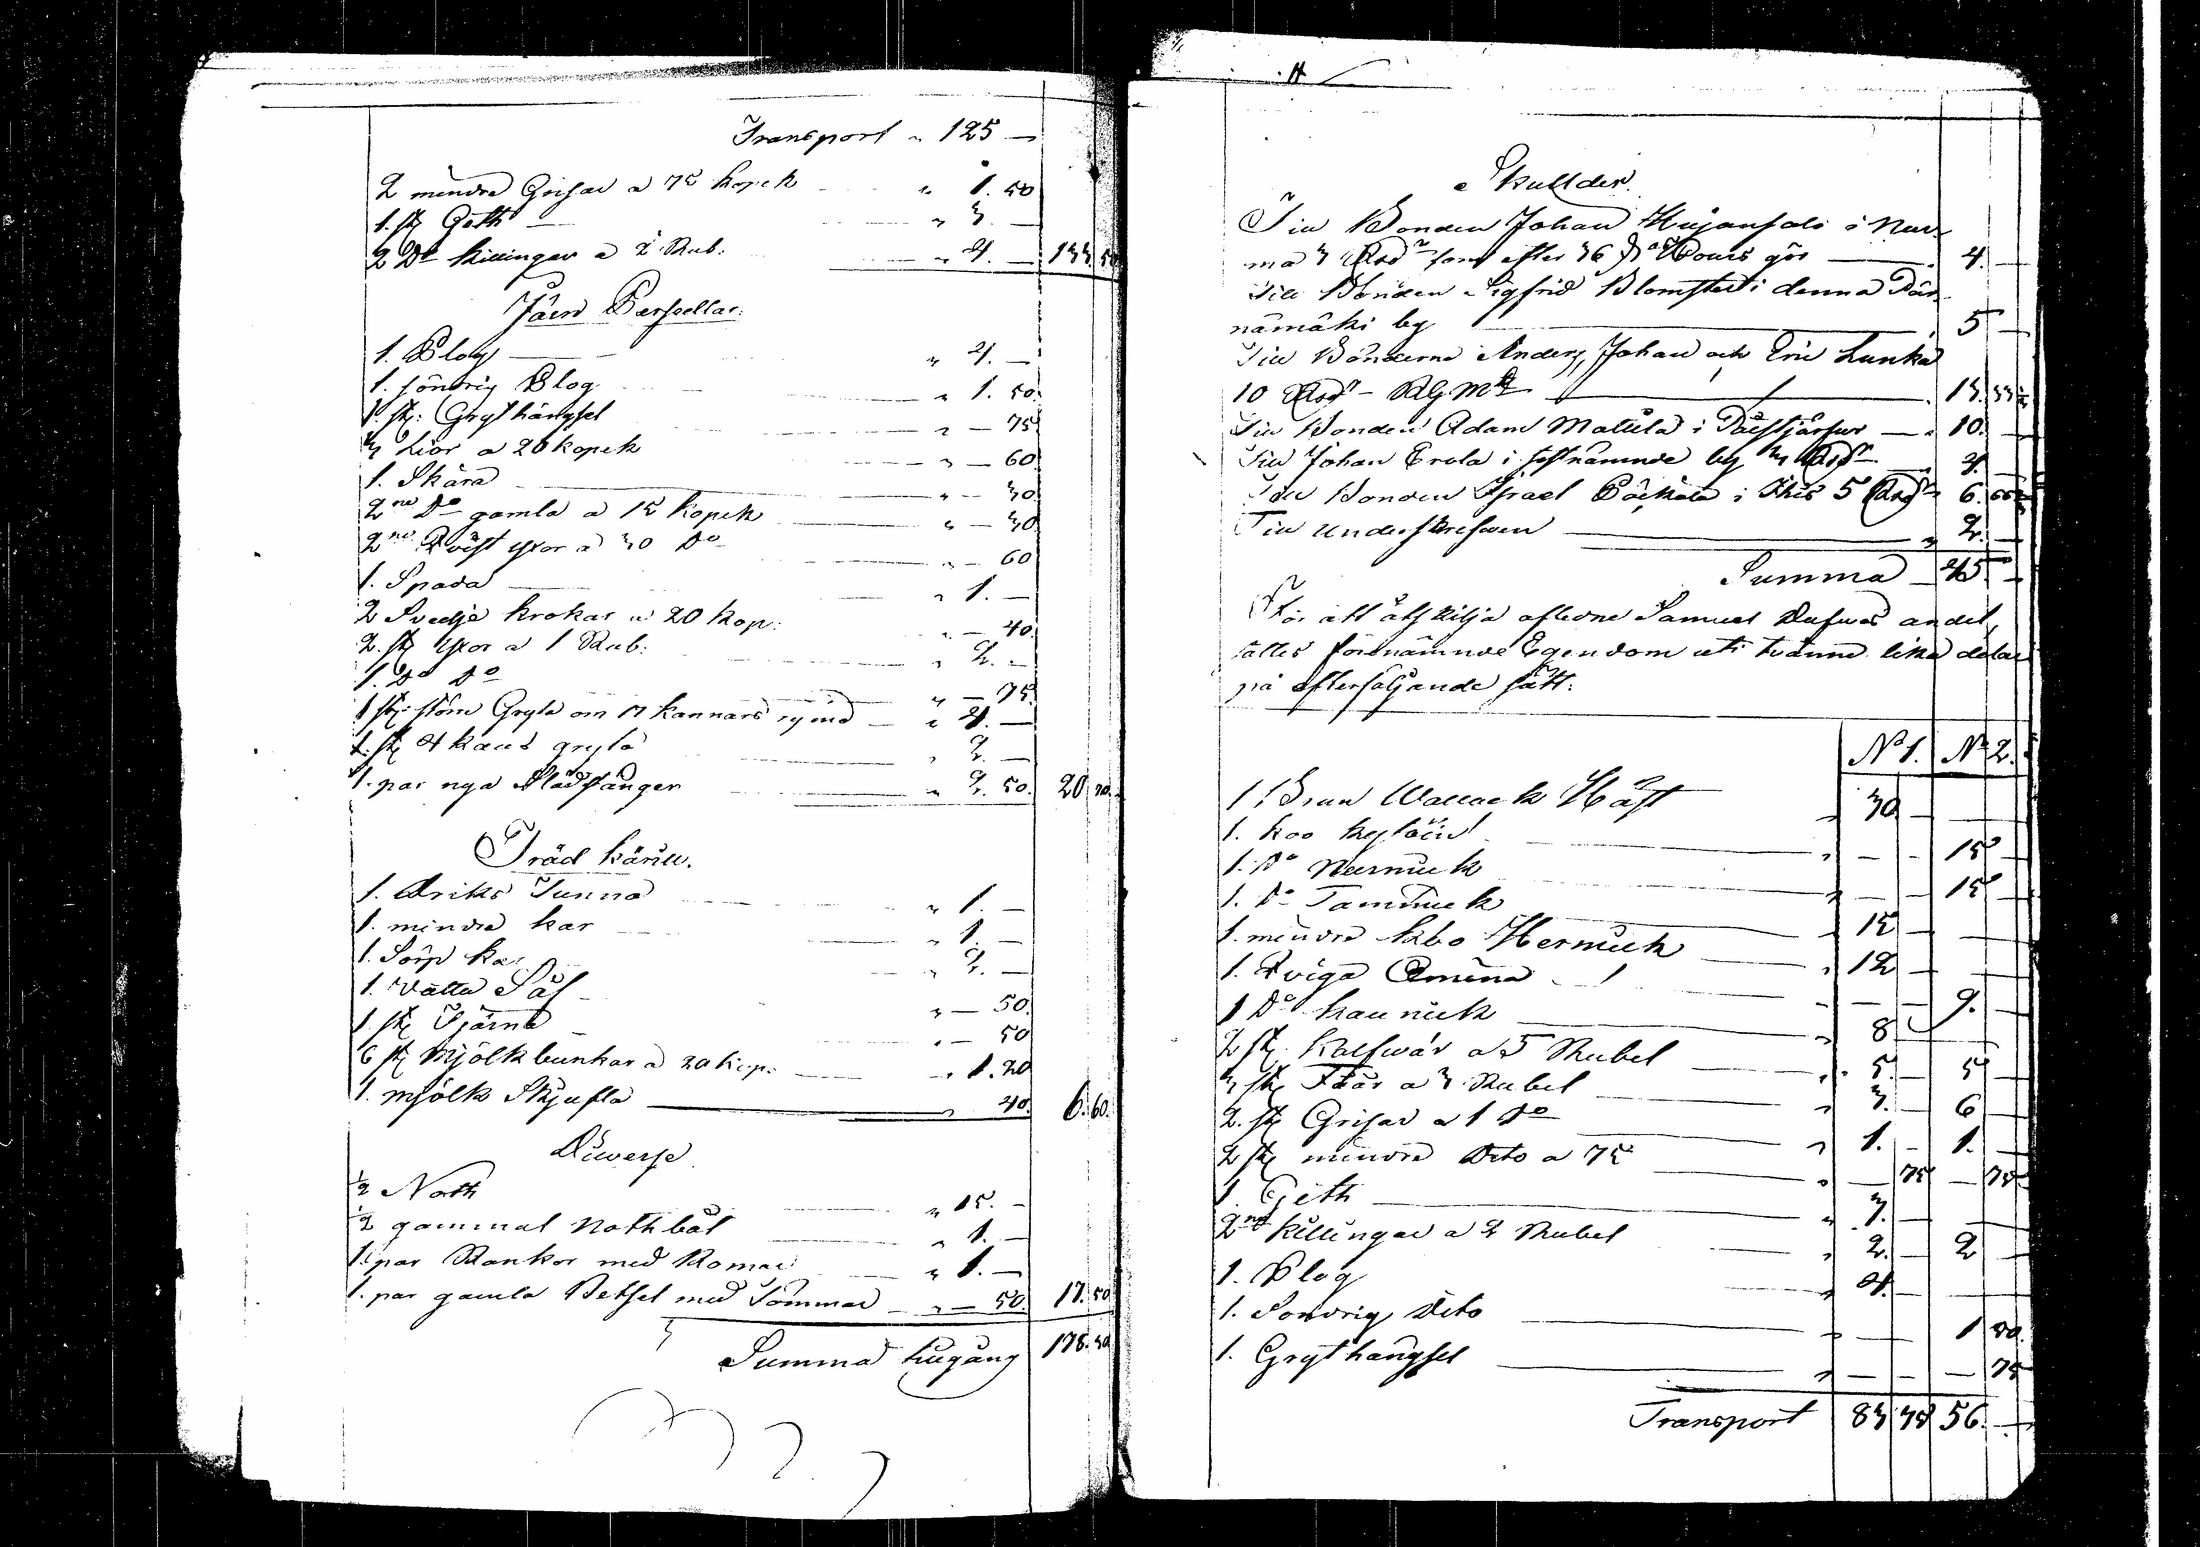 Transport " 125 —
2 mindre Grisar a 75 kopek " 1. 50
1. st Geth — " 3. —
2 Do killingar a 2 Rub. " 4. — 133. 50
Järn Persedlar.
1. Plog — " 4. —
1. söndrig Plog " 1. 50.
1. st. Grythängsel " — 75
3 Liar a 20 kopek " — 60
1. Skära " — 30
2ne Do gamla a 15 kopek " — 30
2ne Qvist yxor a 30 Do " — 60
1. Spada " 1. —
2 Svedje krokar a 20 kop: " — 40.
2. st yxor a 1 Rub: " 2. —
1. Do Do " — 75.
1 st: större Gryta om 17 kannars rymd " 4. —
1. st 4 kans gryta " 2. —
1. par nya Slädstänger " 2. 50. 20 70.
Träd kärill.
1. Driks Tunna " 1. —
1. mindre kar " 1. —
1. Sörp kar " 2. —
1. vatten Så " — 50.
1 st Tjärna " — 50
6 st Mjölk bunkar a 20 kop: " 1. 20
1. mjölk Skjufla " 40. 6. 60.
Diverse
½ Noth " 15. —
½ gammal Nothbåt " 1. —
1. par Rankor med Romar " 1. —
1. par gamla Betsel med Tömmar " — 50. 17. 50
Summa tillgång 178. 30
Skulder.
Till Bonden Johan Hujansalo i Nur-
ma 3 som efter 36 gör — 4. —
Till Bonden Sigfrid Blomster i denna Pär-
nämäki by — 5 —
Till Bönderne Anders, Johan och Eric Lunka
10 — 13. 33⅓
Till Bonden Adam Mattila i — 10. —
Till Johan Erola i sistnämnde by 3 4. —
Till Bonden Israel i 5 6. 66⅔
Till — " 2. —
Summa 45 —
För att åtskilja afledne Samuel andel,
ställes förenämnde Egendom uti tvänne lika delar
på efterföljande sätt:
No 1. No 2.
1. Brun Wallack Häst " 30 —
1. koo Kyläin " — — 15 —
1. Do Nurmick " — — 15 —
1. Do Tammick " 15 —
1. mindre kbo Hernick " 12 —
1. Qviga Omena " — — 9. —
1 Do kaunick " 8 —
2 st. kalfwar a 5 Rubel " 5. — 5 —
3 st Fåår a 3 Rubel " 3. — 6 —
2. st Grisar a 1 Do " 1. — 1. —
2 st mindre Dito a 75 " — 75 — 75
1 Geth " 3. —
2ne killingar a 2 Rubel " 2. — 2 —
1. Plog " 4. —
1. Söndrig Dito " — 1 50.
1. Grythängsel " — — — 75
Transport 83 75 56. —